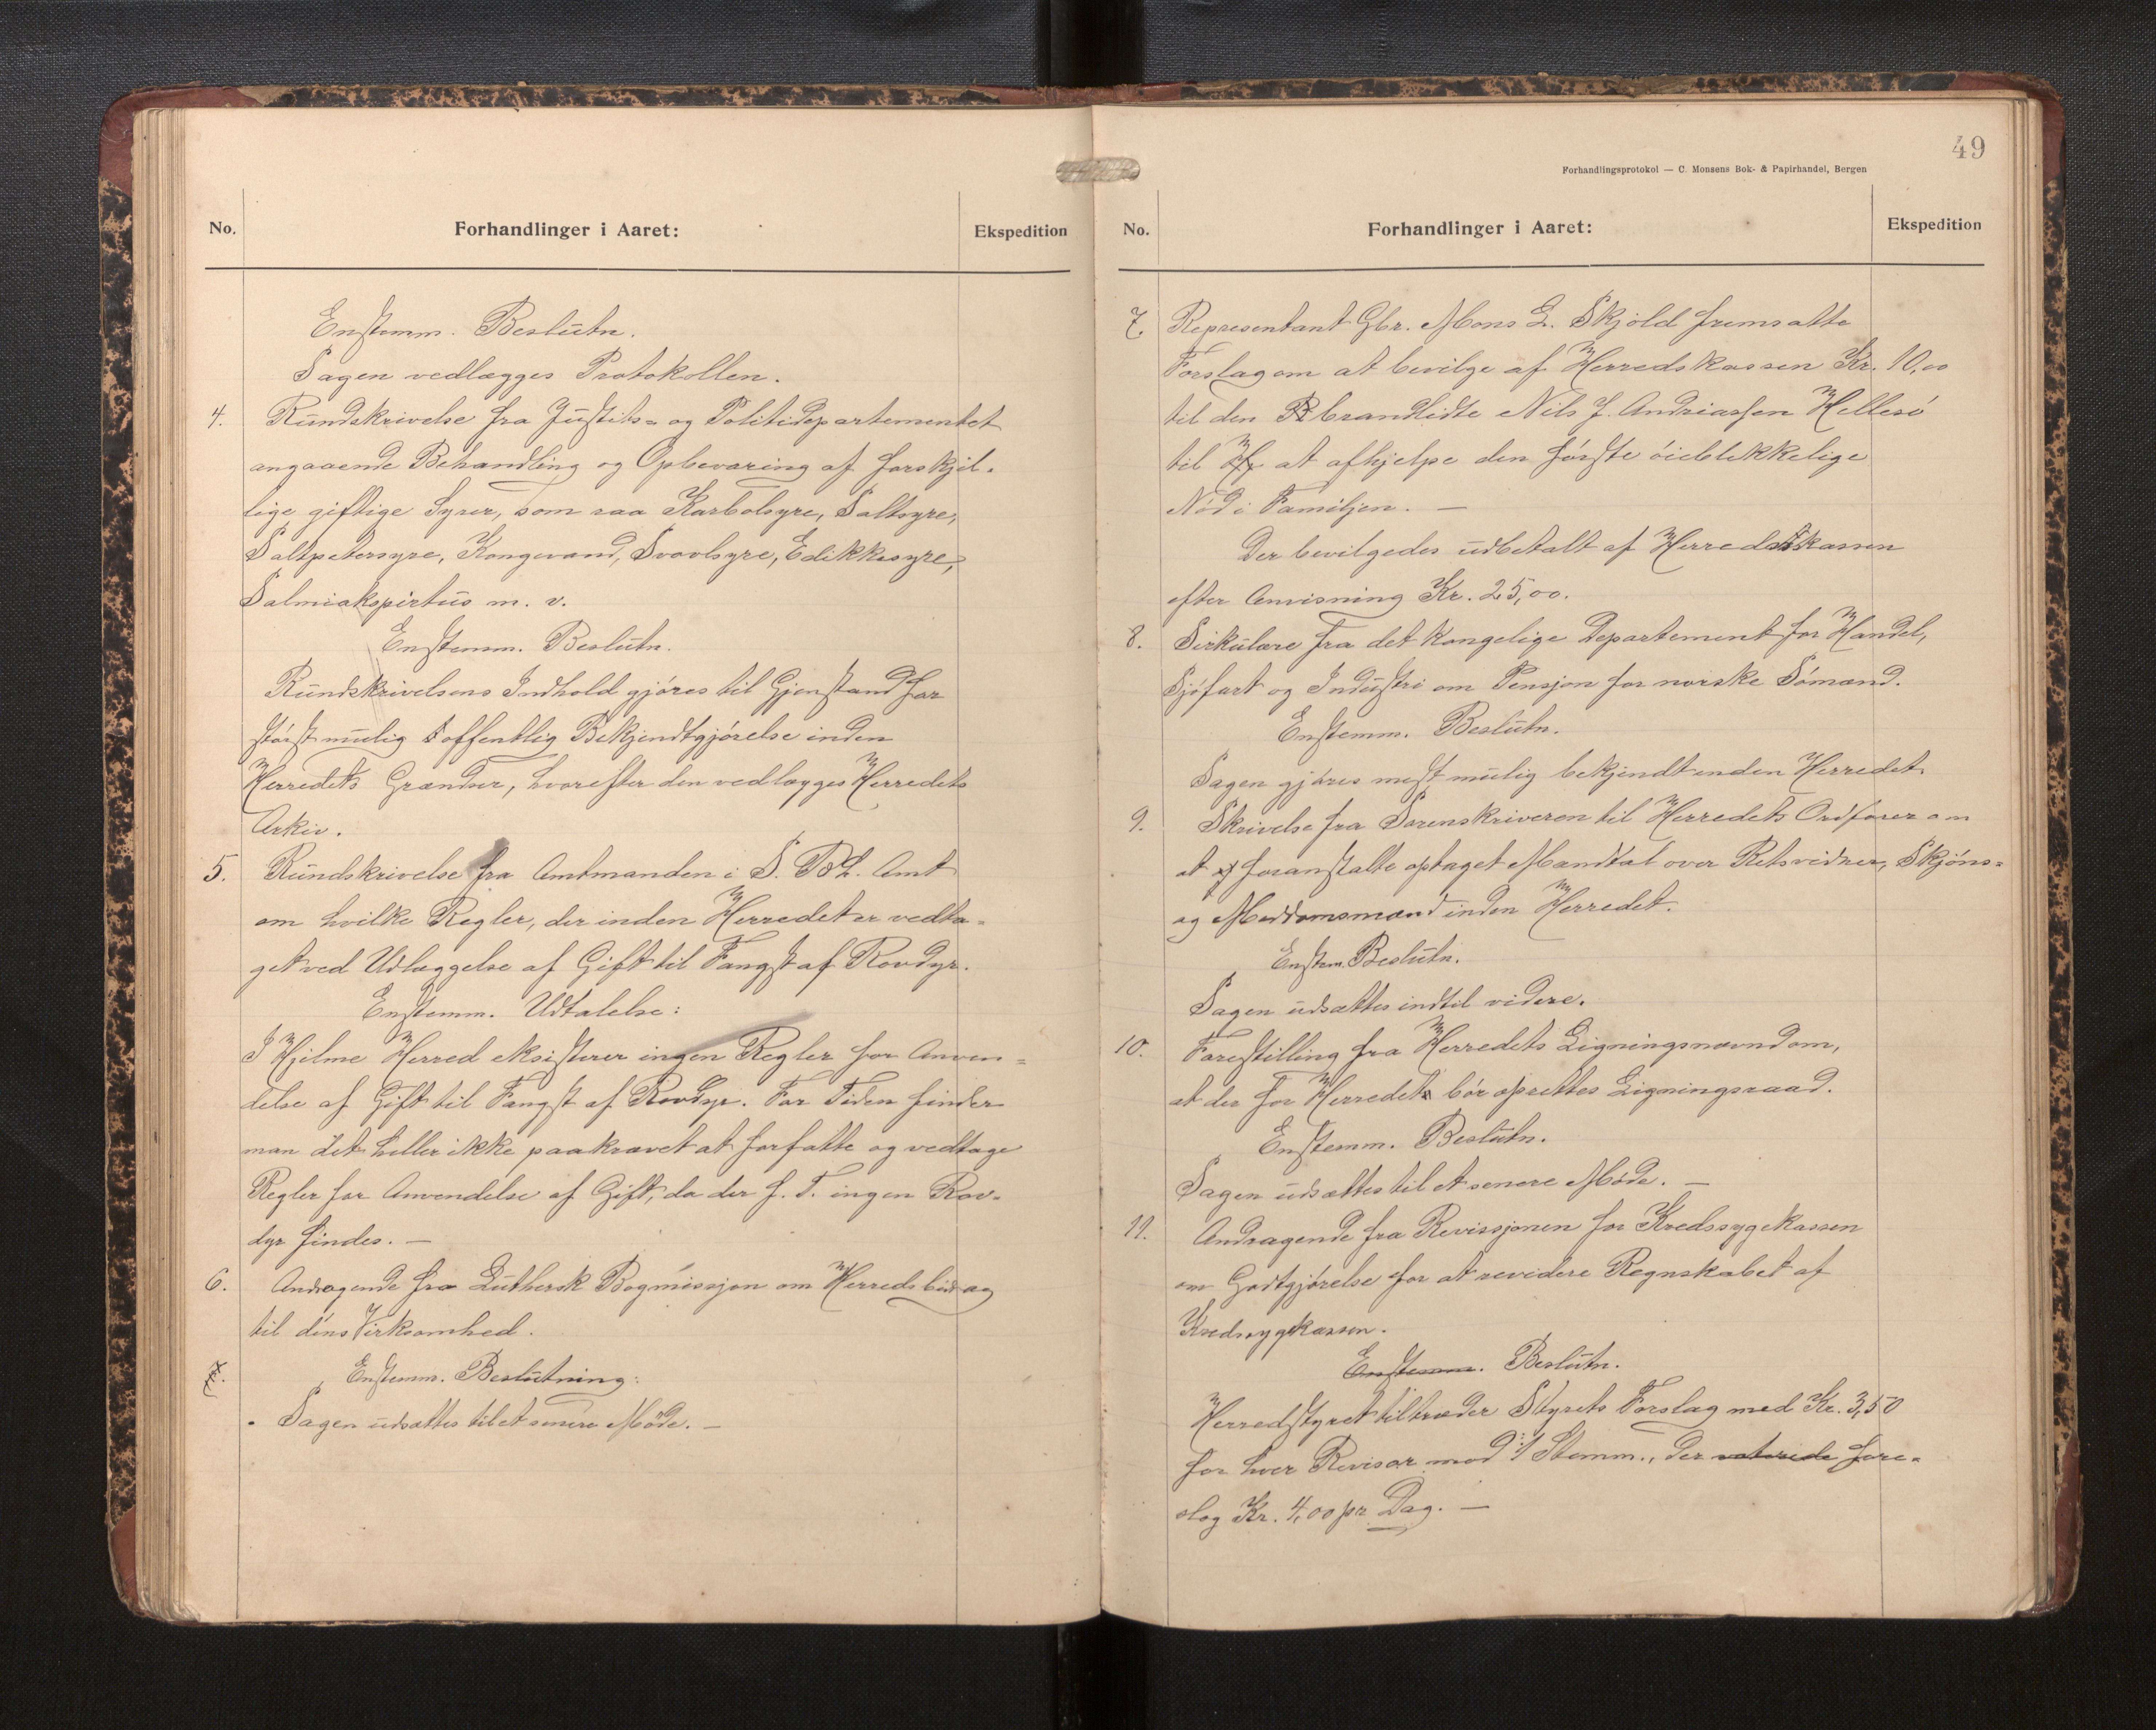 No.
Forhandlinger i Aaret:
Ekspedition
Enstemm. Beslutn.
Sagen vedlægges Protokollen.
4. Rundskrivelse fra Justits- og Politidepartementet
angaaende Behandling og Opbevaring af forskjil-
lige giftige Syrer, som saa Karbolsyre, Saltsyre,
Saltpetersyre, Kongevand, Svovlsyre, Edikksyre,
Salmiakspirtus m. v.
Enstemm. Beslutn.
Rundskrivelsens Indhold gjøres til Gjenstand for
størst mulig offentlig Bekjendtgjørelse inden
Herredets Grændser, hvorefter den vedlægges Herredets
Arkiv.
5. Rundskrivelse fra Amtmanden i S. Bh. Amt
om hvilke Regler, der inden Herredet er vedta-
get ved Udlæggelse af Gift til Fangst af Rovdyr.
Enstemm. Udtalelse:
I Hjelme Herred eksisterer ingen Regler for Anven-
delse af Gift til Fangst af Rovdyr. For Tiden finder
man det heller ikke paakrævet at forfatte og vedtage
Regler for Anvendelse af Gift, da der f. T. ingen Rov-
dyr findes. —
6. Andragende fra Luthersk Bogmissjon om Herredsbidrag
til dens Virksomhed.
Enstemm. Beslutning:
Sagen udsættes til et senere Møde. —
49
Forhandlingsprotokol — C. Monsens Bok- & Papirhandel, Bergen
No.
Forhandlinger i Aaret:
Ekspedition
7. Representant Gbr. Mons L. Skjold fremsatte
Forslag om at bevilge af Herredskassen Kr. 10,00
til den brandlidte Nils J. Andriassen Hellesø
til at afhjelpe den første øieblikkelige
Nød i Familjen. —
Der bevilgedes udbetalt af Herredskassen
efter Anvisning Kr. 25,00.
8. Sirkulære fra det kongelige Departement for Handel,
Sjøfart og Industri om Pensjon for norske Sømænd.
Enstemm. Beslutn.
Sagen gjøres mest mulig bekjendt inden Herredet.
9. Skrivelse fra Sorenskriveren til Herredets Ordfører om
at foranstalte optaget Mandtal over Retsvidner, Skjøns-
og Meddomsmænd inden Herredet.
Enstem. Beslutn.
Sagen udsættes indtil videre.
10. Forestilling fra Herredets Ligningsnævnd om,
at der for Herredet bør oprettes Ligningsraad.
Enstemm. Beslutn.
Sagen udsættes til et senere Møde. —
11. Andragende fra Revissjonen for Kredssygekassen
om Godtgjørelse for at revidere Regnskabet af
Kredssygekassen.
Enstemm. Beslutn.
Herredstyret tiltræder Styrets Forslag med Kr. 3,50
for hver Revisor mod 1 Stemm., der voterede fore-
slog Kr. 4,00 pr Dag. —